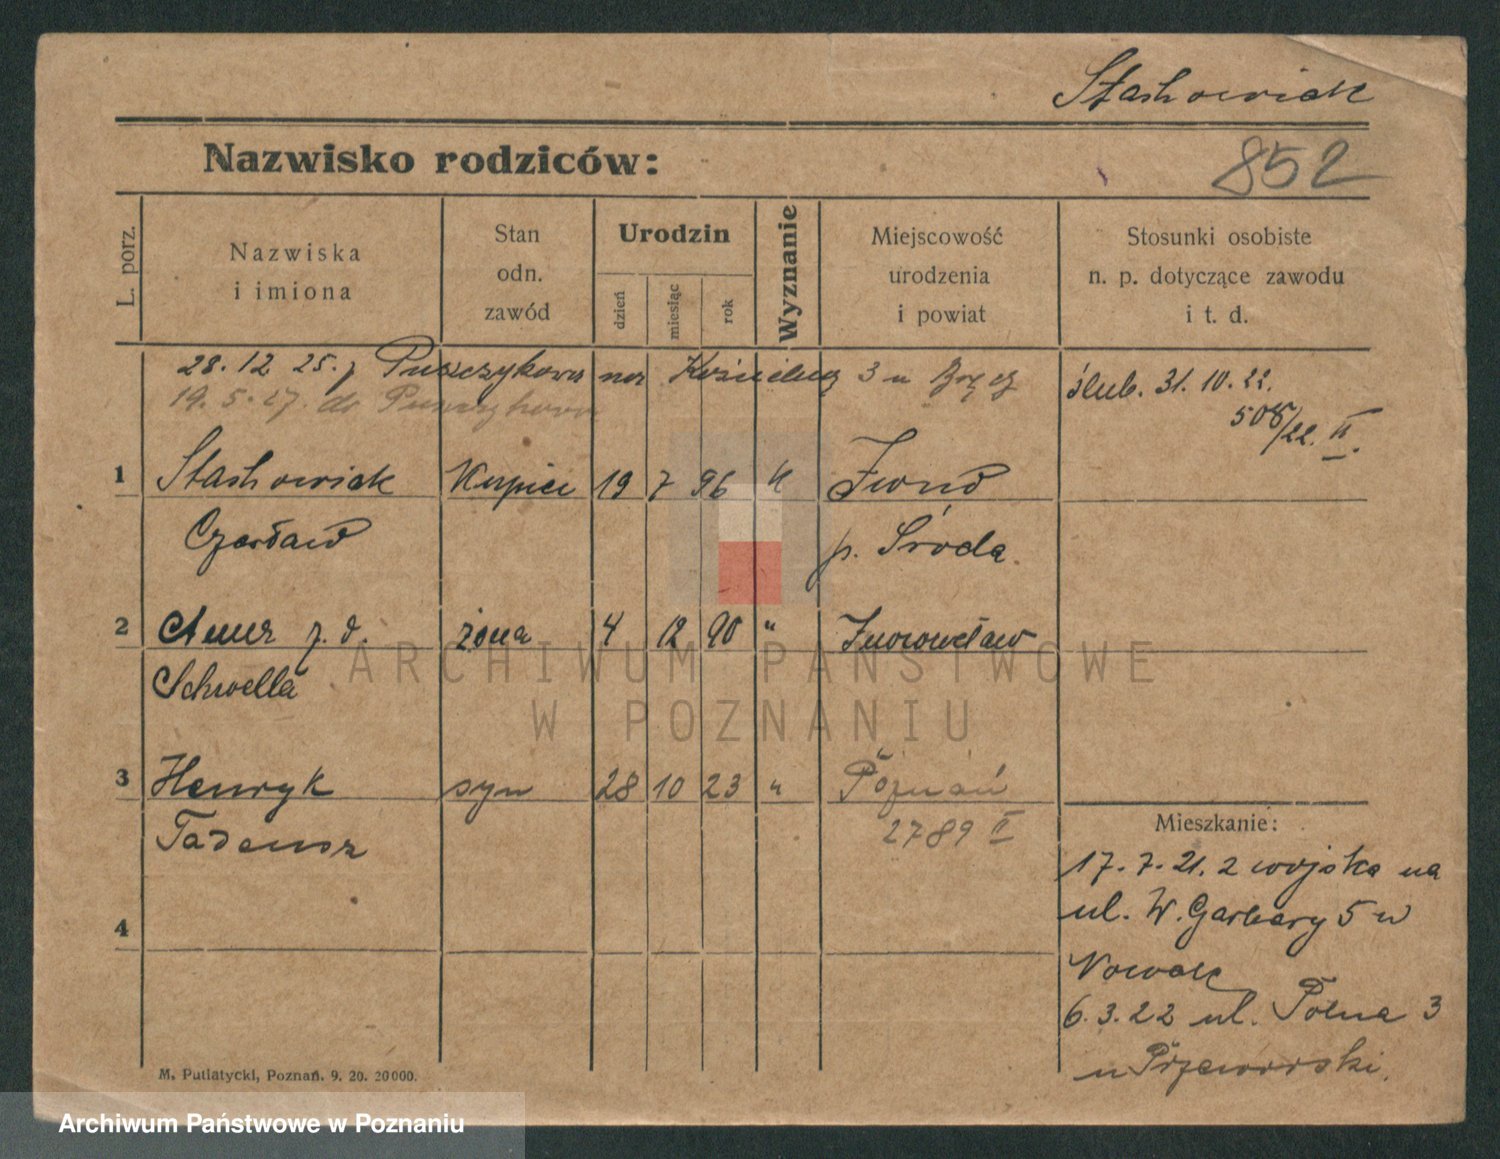 Stachowiak
Nazwisko rodziców:
852
L. porz.
Nazwiska
i imiona
Stan
odn.
zawód
Urodzin
dzień
miesiąc
rok
Wyznanie
Miejscowość
urodzenia
i powiat
Stosunki osobiste
n. p. dotyczące zawodu
i t. d.
28. 12 25. z Puszczykowa na 3 u
19. 5. 27. do Puszczykowa
ślub. 31. 10. 22.
508/22. II.
1 Stachowiak Kupiec 19 7 96 k
Czesław p. Środa
2 Anna z. d. żona 4 12 90 " Inowrocław
Schwella
3 Henryk syn 28 10 23 " Poznań
Tadeusz 2789 II
4
Mieszkanie:
17. 7. 21. z wojska na
ul. W. Garbary 5 u
Nowak
6. 3. 22 ul. Polna 3
u Przeworski.
M. Putiatycki, Poznań. 9. 20. 20000.
ARCHIWUM PAŃSTWOWE
W POZNANIU
Archiwum Państwowe w Poznaniu